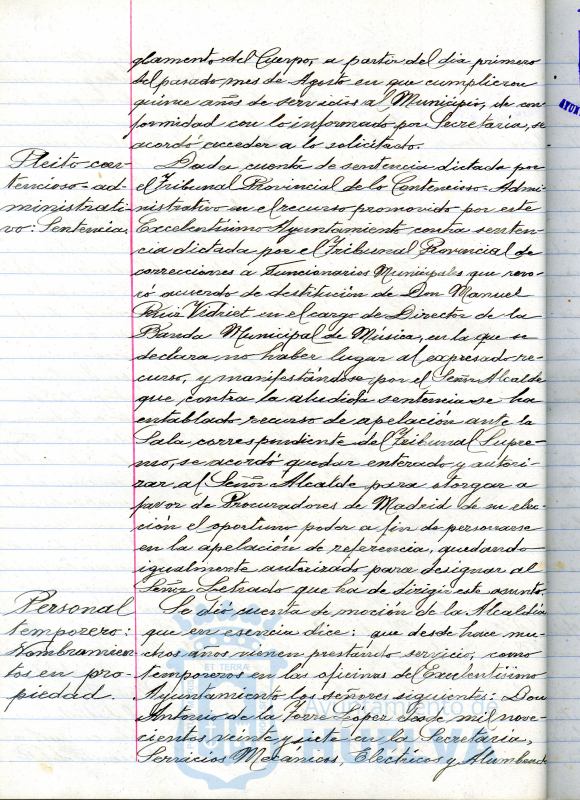 glamento del Cuerpo, a partir del dia primero
del pasado mes de Agosto en que cumplieron
quince años de servicios al Municipio, de con-
formidad con lo informado por Secretaría, se
acordó acceder a lo solicitado.
Pleito con-
tencioso-ad-
ministrati-
vo: Sentencia
Dada cuenta de sentencia dictada por
el Tribunal Provincial de lo Contencioso-Admi-
nistrativo en el recurso promovido por este
Excelentísimo Ayuntamiento contra senten-
cia dictada por el Tribunal Provincial de
correcciones a Funcionarios Municipales que revo-
có acuerdo de destitución de Don Manuel
en el cargo de Director de la
Banda Municipal de Música, en la que se
declara no haber lugar al expresado re-
curso, y manifestándose por el Señor Alcalde
que, contra la aludida sentencia se ha
entablado recurso de apelación ante la
Sala correspondiente del Tribunal Supre-
mo, se acordó quedar enterado y autori-
zar al Señor Alcalde para otorgar a
favor de Procuradores de Madrid de su elec-
ción el oportuno poder a fin de personarse
en la apelación de referencia, quedando
igualmente autorizado para designar al
Señor Letrado que ha de dirigir este asunto.
Personal
temporero:
Nombramien-
tos en pro-
piedad.
Se dió cuenta de moción de la Alcaldía
que en esencia dice: que desde hace mu-
chos años vienen prestando servicio, como
temporeros en las oficinas del Excelentísimo
Ayuntamiento los señores siguientes: Don
Antonio de la Torre López desde mil nove-
cientos veinte y siete en la Secretaría,
Servicios Mecánicos, Eléctricos y Alumbrado
ET TERRÆ
Ayuntamiento de
HUELVA